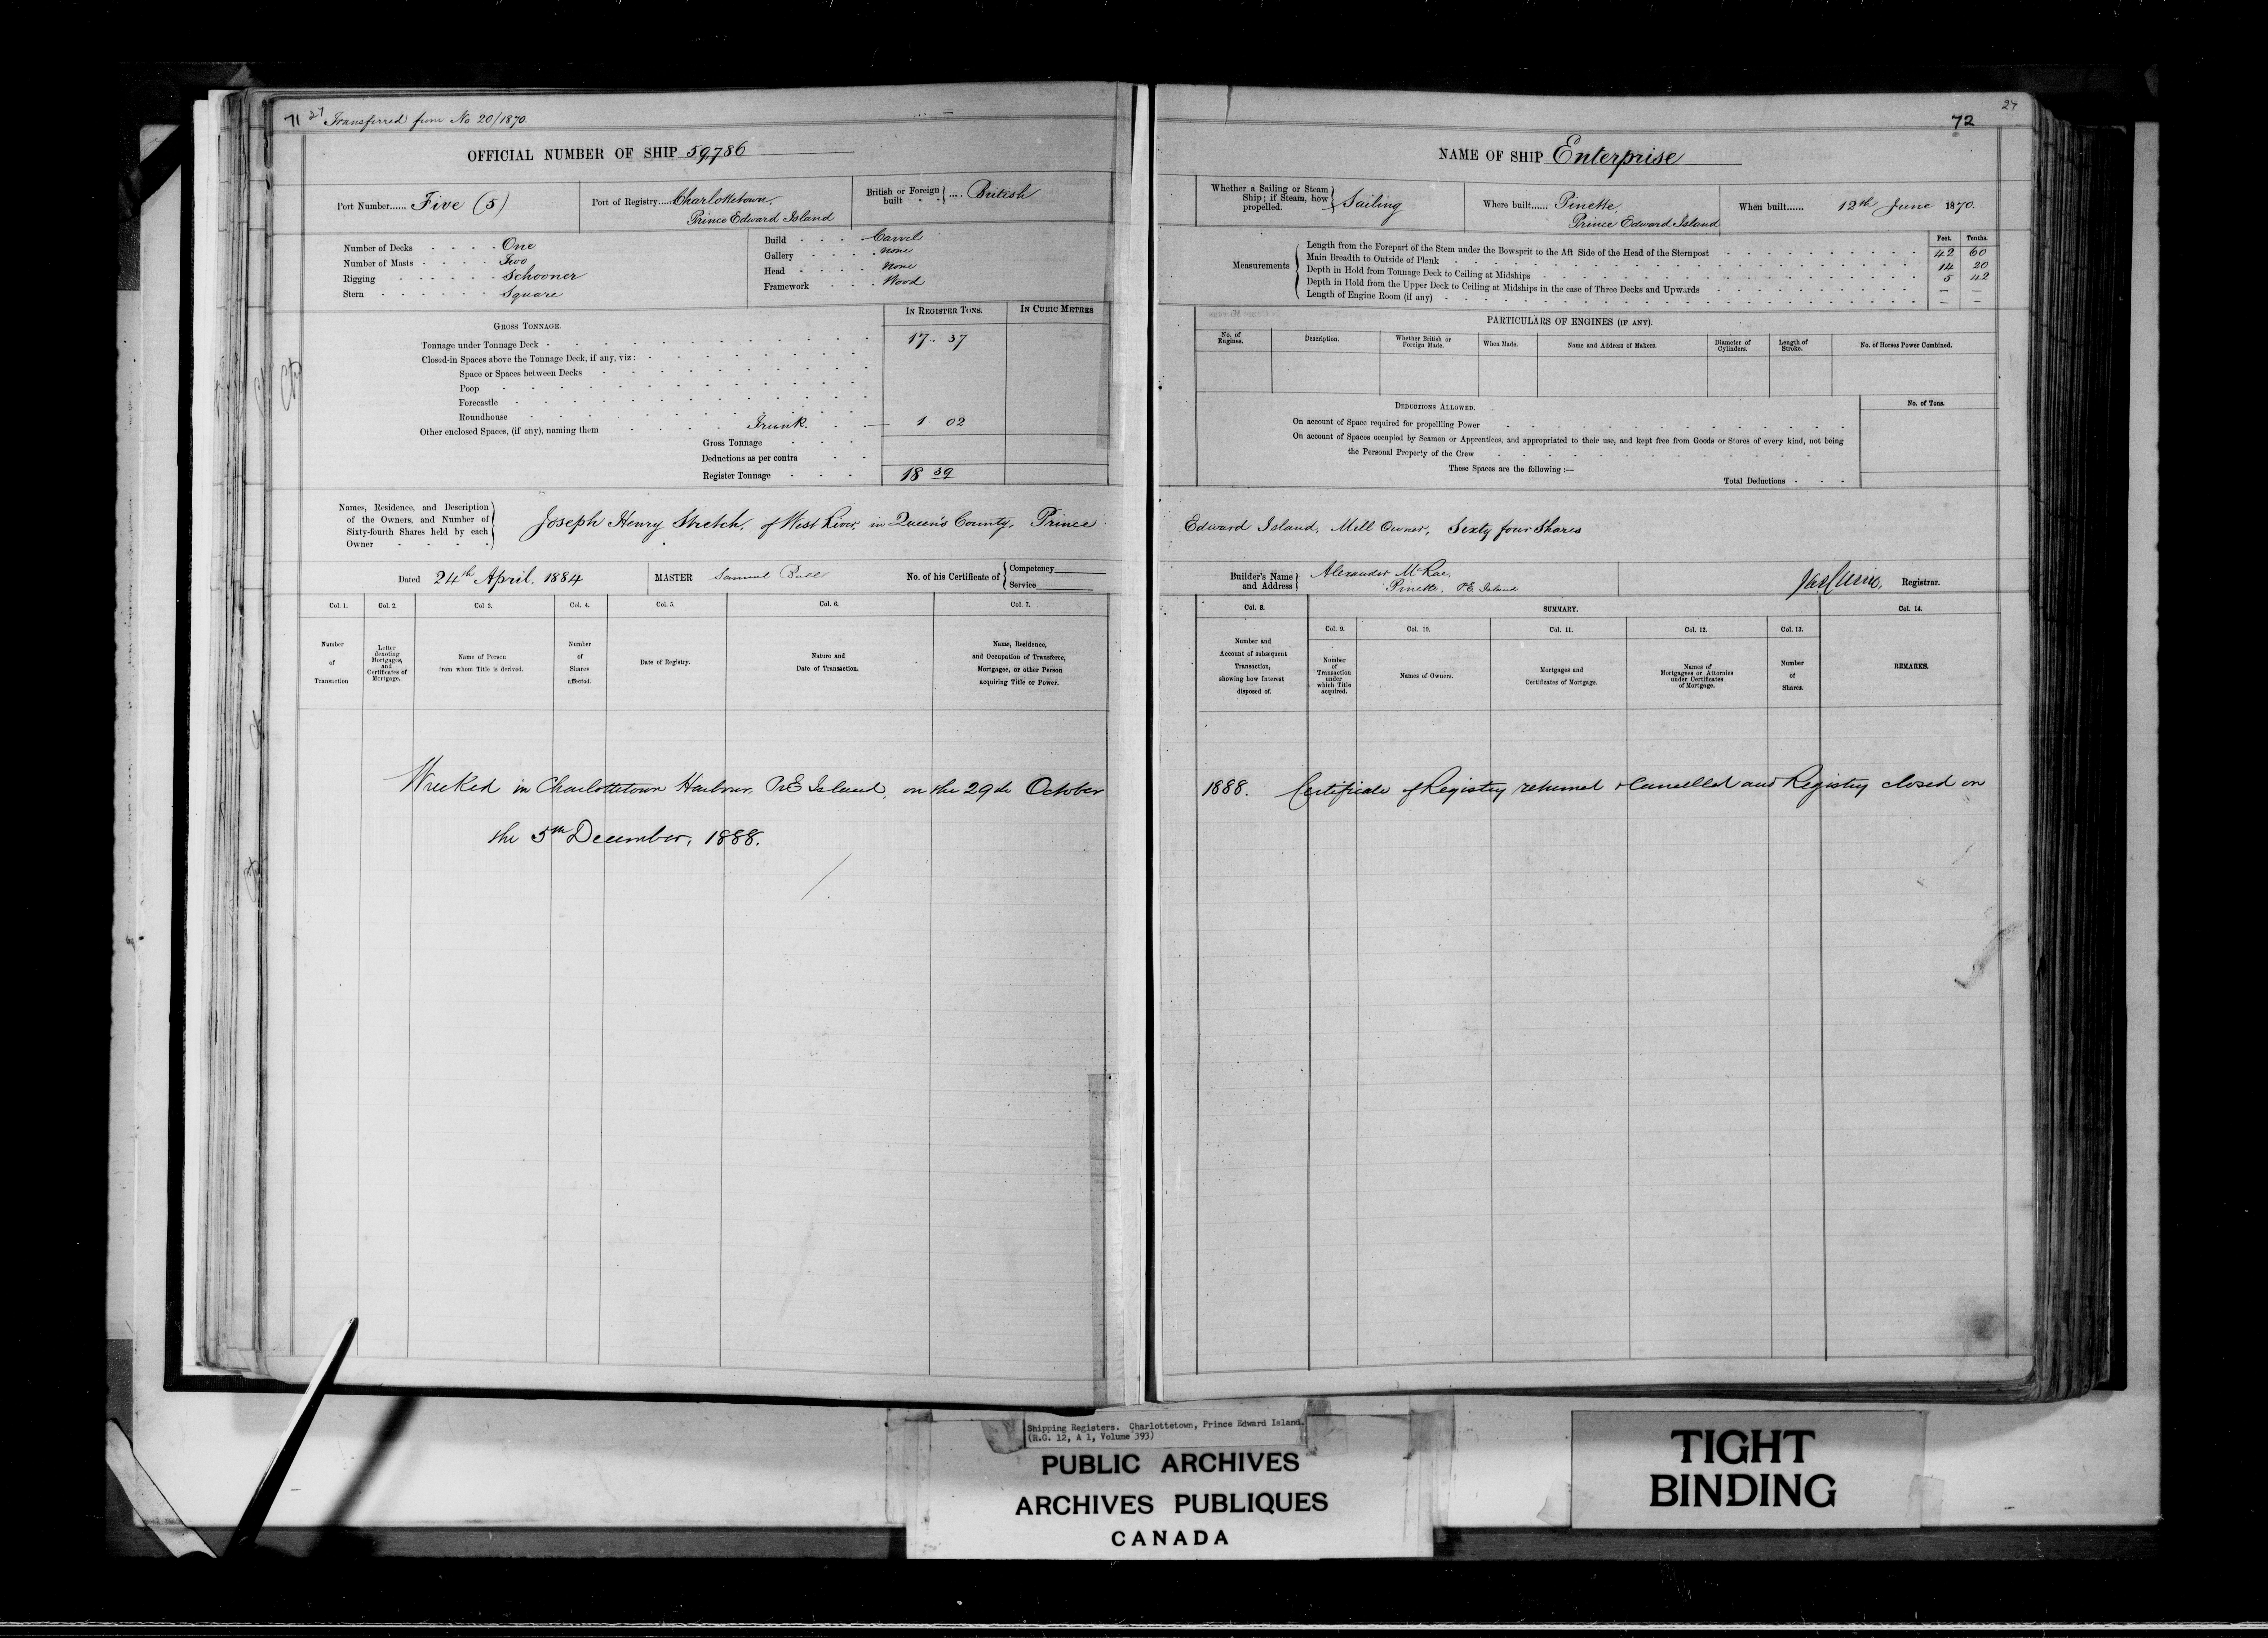 71 27 Transferred from No 20/1870.
OFFICIAL NUMBER OF SHIP 59,786
Port Number...... Five (5)
Port of Registry.... Charlottetown,
Prince Edward Island
British or Foreign built .... British
Number of Decks One
Number of Masts Two
Rigging Schooner
Stern Square
Build Carvel
Gallery None
Head None
Framework Wood
IN REGISTER TONS. IN CUBIC METRES
GROSS TONNAGE.
Tonnage under Tonnage Deck 17.. 37
Closed-in Spaces above the Tonnage Deck, if any, viz:
Space or Spaces between Decks
Poop
Forecastle
Roundhouse
Other enclosed Spaces, (if any), naming them Trunk. 1 02
Gross Tonnage
Deductions as per contra
Register Tonnage 18 39
Names, Residence, and Description
of the Owners, and Number of
Sixty-fourth Shares held by each
Owner
Joseph Henry Stretch, of West River, in Queen's County, Prince
Dated 24th April, 1884
MASTER Samuel
No. of his Certificate of
Competency
Service
Col. 1. Col. 2. Col 3. Col. 4. Col. 5. Col. 6. Col. 7.
Number
of
Transaction
Letter
denoting
Mortgages,
and
Certificates of
Mortgage.
Name of Person
from whom Title is derived.
Number
of
Shares
affected.
Date of Registry.
Nature and
Date of Transaction.
Name, Residence,
and Occupation of Transferee,
Mortgagee, or other Person
acquiring Title or Power.
Wrecked in Charlottetown Harbour, P.E Island, on the 29th October
the 5th December, 1888.
27
72
NAME OF SHIP Enterprise
Whether a Sailing or Steam
Ship; if Steam, how
propelled.
Sailing
Where built...... Pinette,
Prince Edward Island
When built...... 12th June 1870.
Feet. Tenths.
Measurements
Length from the Forepart of the Stem under the Bowsprit to the Aft Side of the Head of the Sternpost 42 60
Main Breadth to Outside of Plank 14 20
Depth in Hold from Tonnage Deck to Ceiling at Midships 5 42
Depth in Hold from the Upper Deck to Ceiling at Midships in the case of Three Decks and Upwards — —
Length of Engine Room (if any) — —
PARTICULARS OF ENGINES (IF ANY).
No. of
Engines.
Description.
Whether British or
Foreign Made.
When Made.
Name and Address of Makers.
Diameter of
Cylinders.
Length of
Stroke.
No. of Horses Power Combined.
DEDUCTIONS ALLOWED.
No. of Tons.
On account of Space required for propellling Power
On account of Spaces occupied by Seamen or Apprentices, and appropriated to their use, and kept free from Goods or Stores of every kind, not being
the Personal Property of the Crew
These Spaces are the following :—
Total Deductions
Edward Island, Mill Owner, Sixty four Shares
Builder's Name
and Address
Alexander McRae,
Pinette, P.E Island
Registrar.
Col. 8. SUMMARY. Col. 14.
Col. 9. Col. 10. Col. 11. Col. 12. Col. 13.
Number and
Account of subsequent
Transaction,
showing how Interest
disposed of.
Number
of
Transaction
under
which Title
acquired.
Names of Owners.
Mortgages and
Certificates of Mortgage.
Names of
Mortgagees or Attornies
under Certificates
of Mortgage.
Number
of
Shares.
REMARKS.
1888. Certificate of Registry returned & Cancelled and Registry closed on
Shipping Registers. Charlottetown, Prince Edward Island.
(R.G. 12, A 1, Volume 393)
PUBLIC ARCHIVES
ARCHIVES PUBLIQUES
CANADA
TIGHT
BINDING